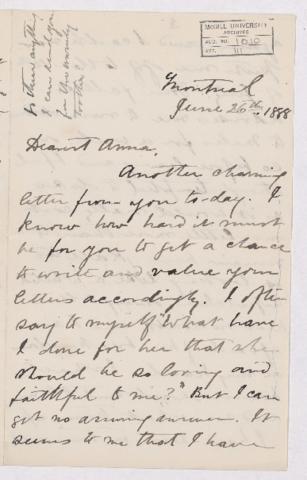 McGILL UNIVERSITY
ARCHIVES
ACC. NO. 1010
REF.
Is there anything
I can send you
for the
Montreal
June 26th. 1888
Dearest Anna,
Another charming
letter from you to-day. I
know how hard it must
be for you to get a chance
to write and value your
letters accordingly. I often
say to myself "What have
I done for her that she
should be so loving and
faithful to me?" But I can
get no answer. It
seems to me that I have